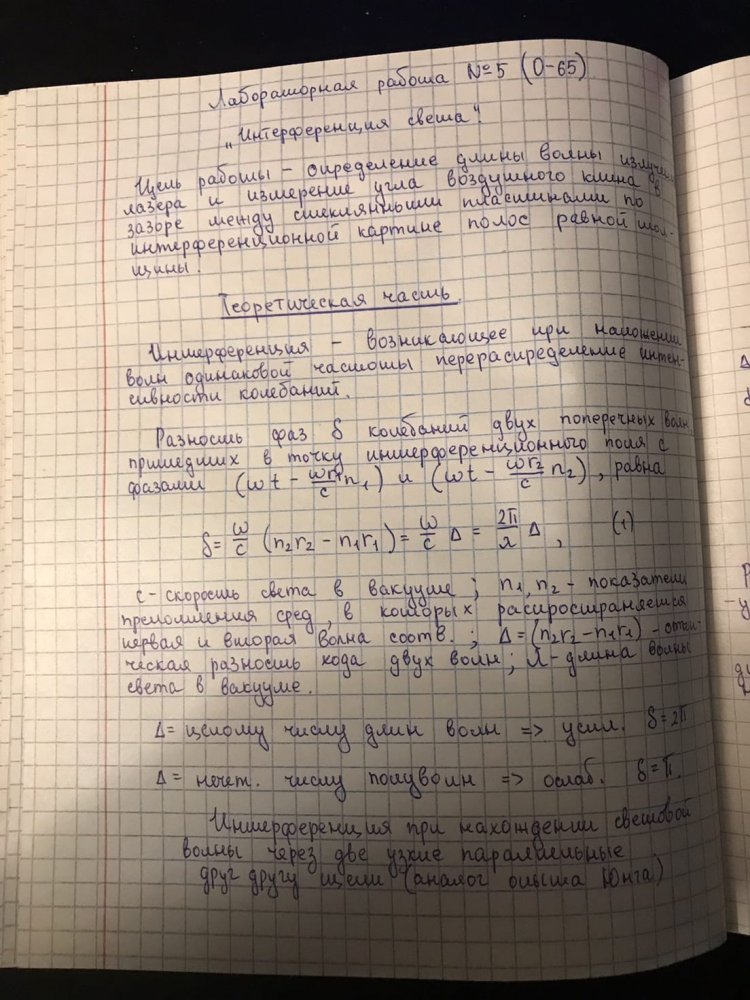 Лабораторная работа №5 (О-65)
„Интерференция света".
Цель работы – определение длины волны излуч.
лазера и измерение угла воздушного клина в
зазоре между стеклянными пластинами по
интерференционной картине полос равной тол-
щины.
Теоретическая часть.
Интерференция – возникающее при наложении
волн одинаковой частоты перераспределение интен-
сивности колебаний.
Разность фаз δ колебаний двух поперечных волн,
пришедших в точку интерференционного поля с
фазами (ωt – ωr₁/c n₁) и (ωt – ωr₂/c n₂), равна
δ = ω/c (n₂r₂ – n₁r₁) = ω/c Δ = 2π/λ Δ, (1)
c – скорость света в вакууме; n₁, n₂ – показатели
преломления сред, в которых распространяется
первая и вторая волна соотв.; Δ = (n₂r₂ – n₁r₁) – опти-
ческая разность хода двух волн; λ – длина волны
света в вакууме.
Δ = целому числу длин волн => усил. δ = 2π
Δ = нечет. числу полуволн => ослаб. δ = π.
Интерференция при нахождении световой
волны через две узкие параллельные
друг другу щели (аналог опыта Юнга)